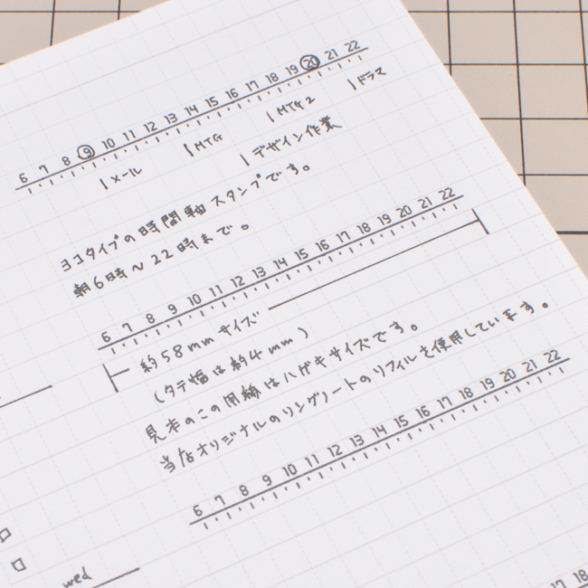 6 7 8 9 10 11 12 13 14 15 16 17 18 19 20 21 22
メール MTG デザイン作業 MTG2 ドラマ
ヨコタイプの時間軸スタンプです。
朝6時～22時まで。
6 7 8 9 10 11 12 13 14 15 16 17 18 19 20 21 22
約58mmサイズ
(タテ幅は約4mm)
見本のこの用紙はハガキサイズです。
当店オリジナルのリングノートのリフィルを使用しています。
6 7 8 9 10 11 12 13 14 15 16 17 18 19 20 21 22
wed
17 18